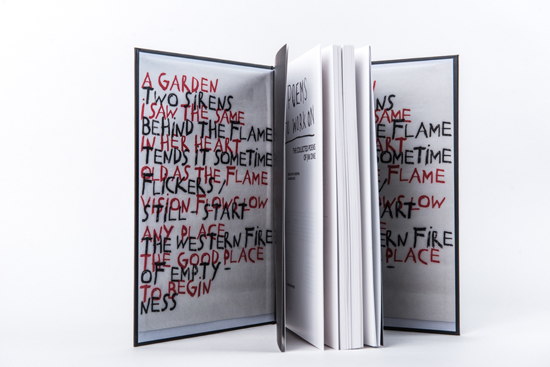 A GARDEN
TWO SIRENS
I SAW THE SAME
BEHIND THE FLAME
IN HER HEART
TENDS IT SOMETIME
OLD AS THE FLAME
FLICKERS /
VISION FLOWS LOW
STILL - START
ANY PLACE
THE WESTERN FIRE
THE GOOD PLACE
OF EMPTY -
TO BEGIN
NESS
POEMS
WORK ON
THE COLLECTED POEMS
OF JIM DINE
NS
SAME
E FLAME
ART
OMETIME
FLAME
OW
ART
ERN FIRE
PLACE